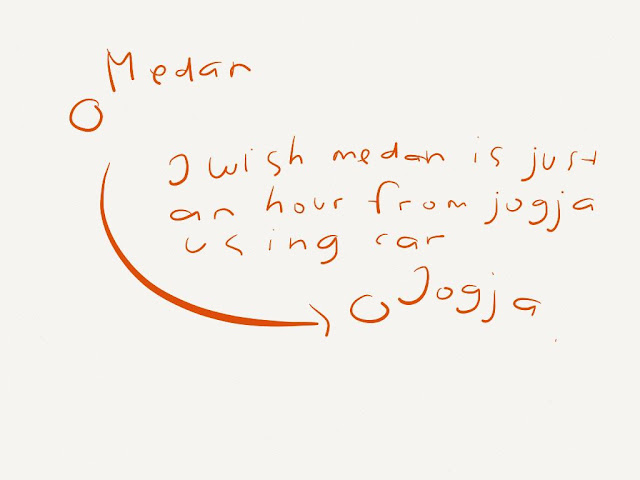 Medan
I wish medan is just
an hour from jogja
using car
Jogja